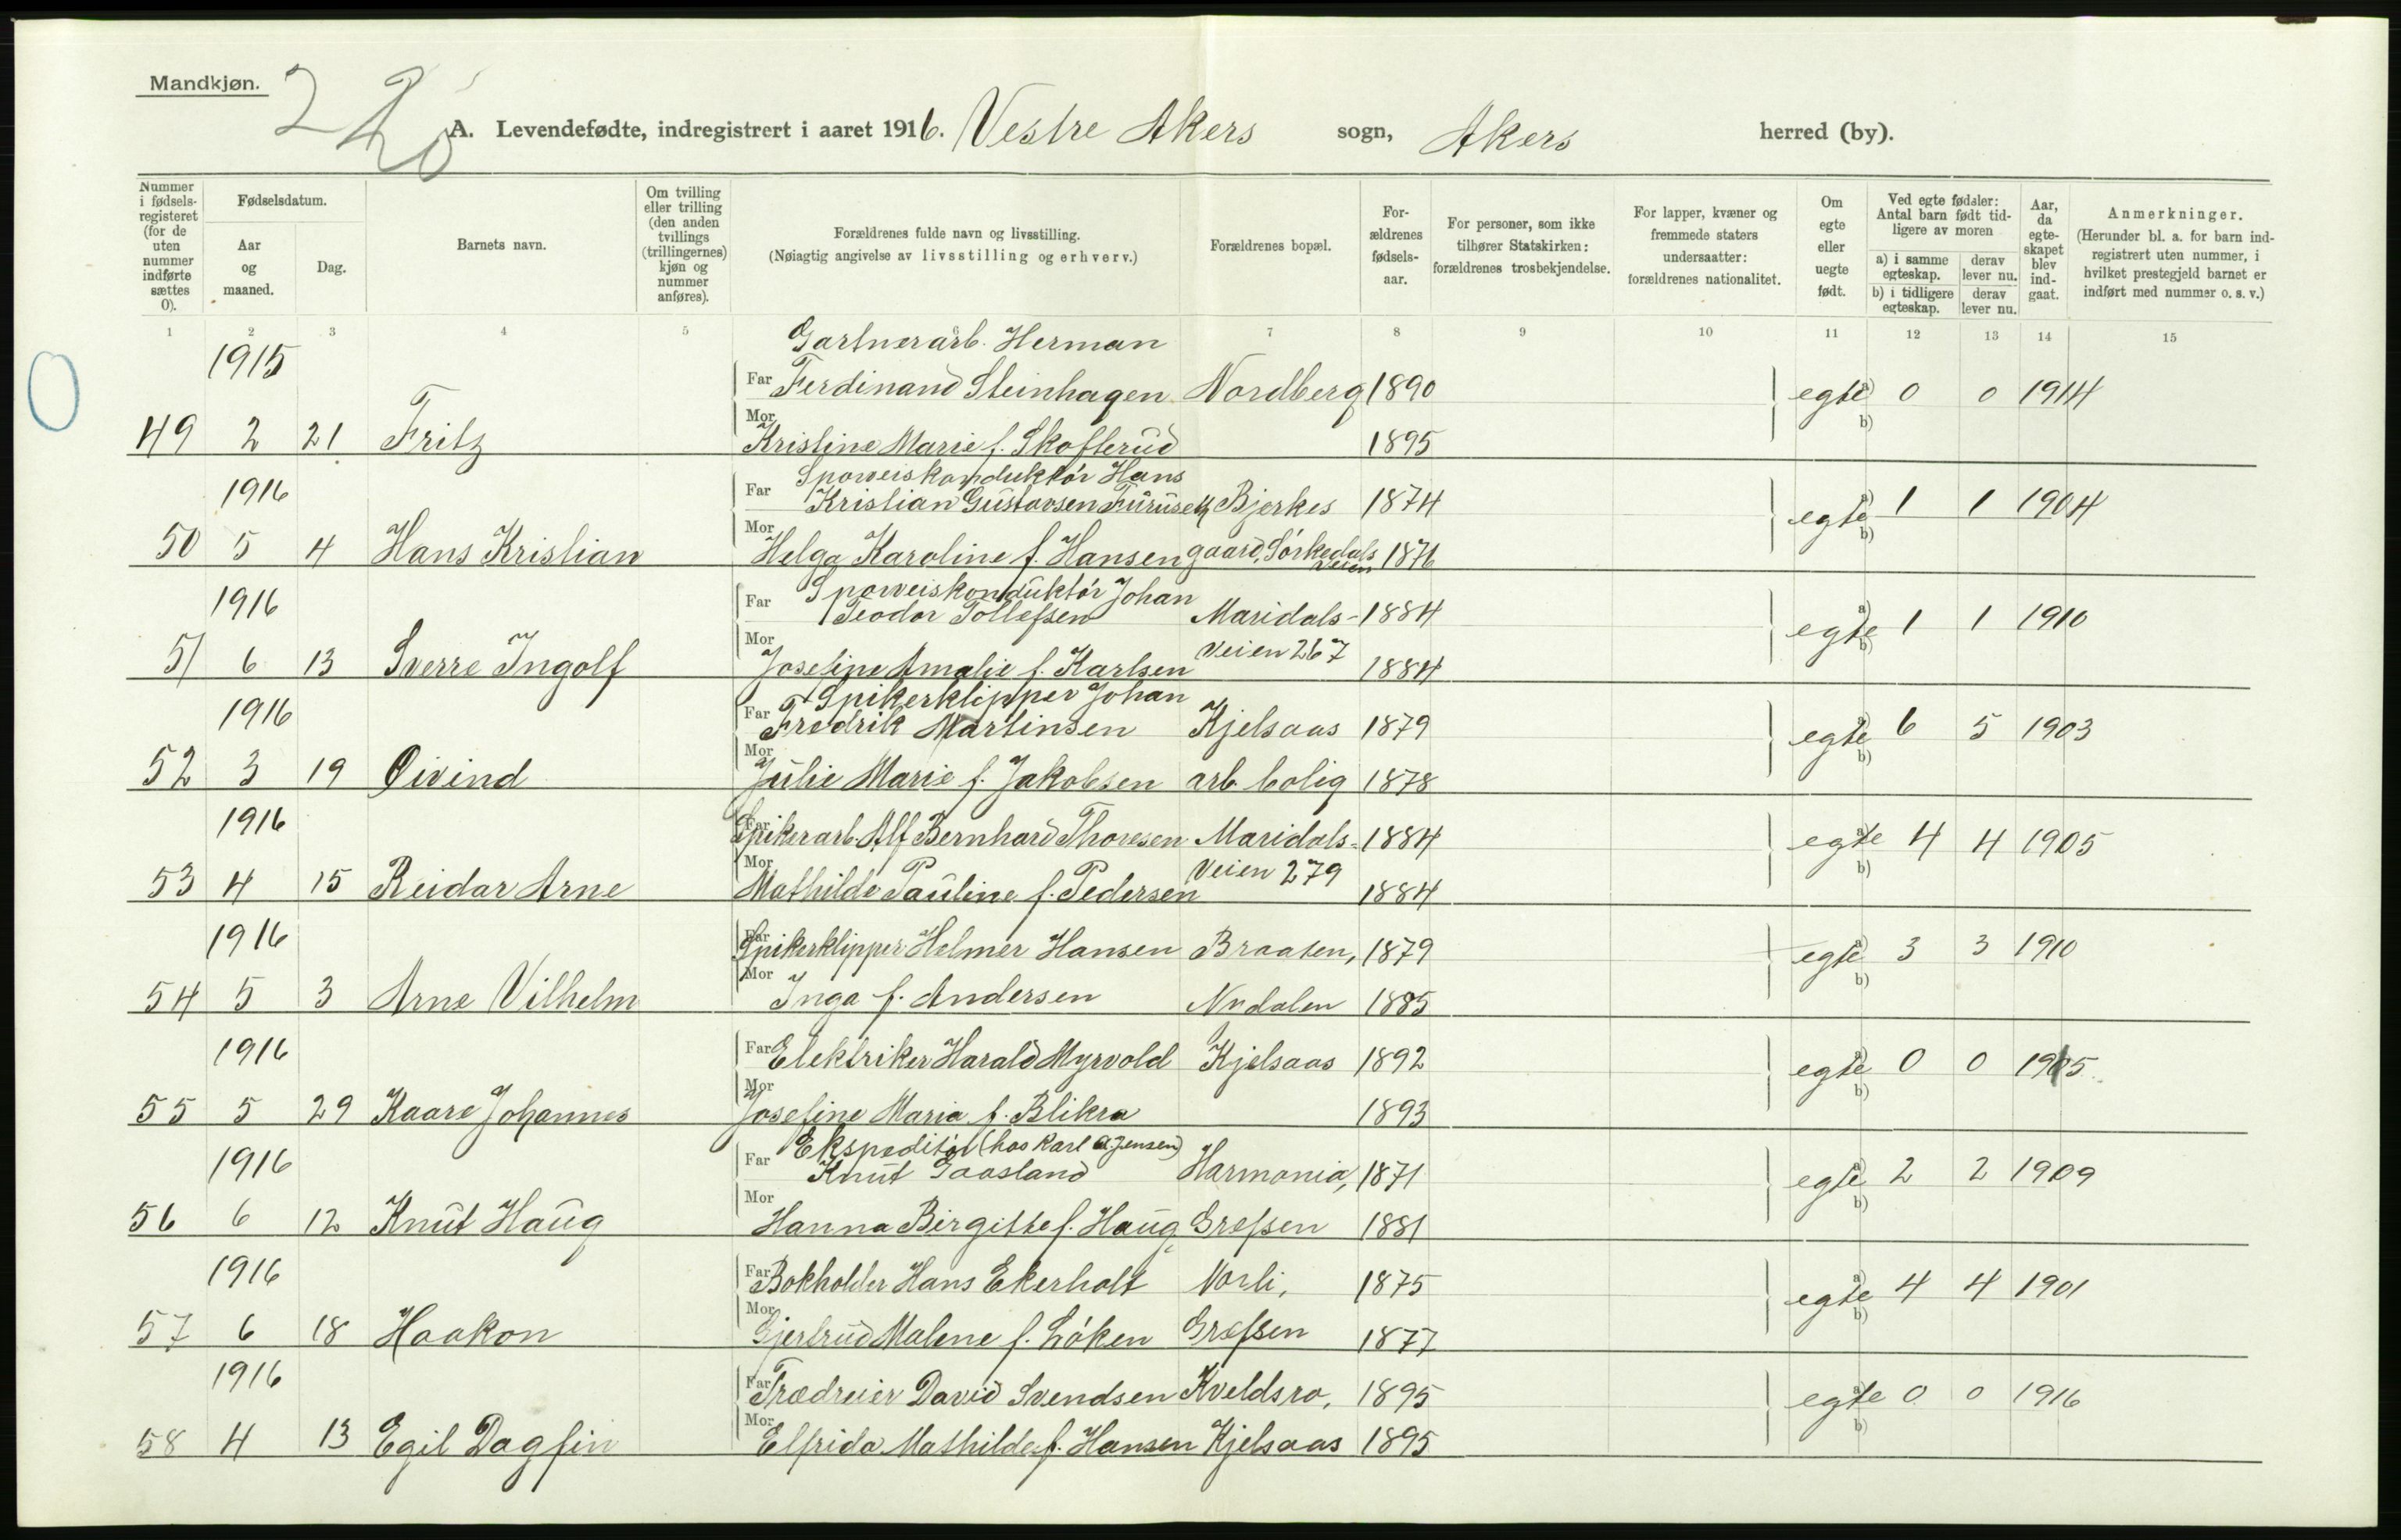 Mandkjøn.
2
A. Levendefødte, indregistrert i aaret 1916. Vestre Akers sogn, Akers herred (by).
Nummer i fødsels-registeret (for de uten nummer indførte sættes 0).
Fødselsdatum.
Aar og maaned.
Dag.
Barnets navn.
Om tvilling eller trilling (den anden tvillings (trillingernes) kjøn og nummer anføres).
Forældrenes fulde navn og livsstilling.
(Nøiagtig angivelse av livsstilling og erhverv.)
Forældrenes bopæl.
For-ældrenes fødsels-aar.
For personer, som ikke tilhører Statskirken: forældrenes trosbekjendelse.
For lapper, kvæner og fremmede staters undersaatter: forældrenes nationalitet.
Om egte eller uegte født.
Ved egte fødsler: Antal barn født tid-ligere av moren
a) i samme egteskap. derav lever nu.
b) i tidligere egteskap. derav lever nu.
Aar, da egte-skapet blev ind-gaat.
Anmerkninger.
(Herunder bl. a. for barn ind-registrert uten nummer, i hvilket prestegjeld barnet er indført med nummer o. s. v.)
1 2 3 4 5 6 7 8 9 10 11 12 13 14 15
0
1915 Gartnerarb. Herman
Far Ferdinand Steinhagen Nordberg 1890 egte a) 0 0 1914
b)
49 2 21 Fritz Mor Kristine Marie f. Skofterud 1895
1916 Sporveiskonduktör Hans
Far Kristian Gustavsen Furuseth Bjerkes 1874 egte a) 1 1 1904
b)
50 5 4 Hans Kristian Mor Helga Karoline f. Hansen gaard, Sörkedals veien 1876
1916 Sporveiskonduktör Johan
Far Teodor Tollefsen Maridals- 1884 egte a) 1 1 1910
b)
51 6 13 Sverre Ingolf Mor Josefine Amalie f. Karlsen Veien 267 1884
1916 Spikerklipper Johan
Far Fredrik Martinsen Kjelsaas 1879 egte a) 6 5 1903
b)
52 3 19 Øivind Mor Julie Marie f. Jakobsen arb. bolig 1878
1916 Far Spikerarb. Alf Bernhard Thoresen Maridals- 1884 egte a) 4 4 1905
b)
53 4 15 Reidar Arne Mor Mathilde Pauline f. Pedersen Veien 279 1884
1916 Far Spikerklipper Helmer Hansen Braaten, 1879 egte a) 3 3 1910
b)
54 5 3 Arne Vilhelm Mor Inga f. Andersen Nydalen 1885
1916 Far Elektriker Harald Myrvold Kjelsaas 1892 egte a) 0 0 1915
b)
55 5 29 Kaare Johannes Mor Josefine Maria f. Blikra 1893
1916 Ekspeditör (hos Karl A. Jensen)
Far Knut Gaasland Harmonia, 1871 egte a) 2 2 1909
b)
56 6 12 Knut Haug Mor Hanna Birgitte f. Haug Grefsen 1881
1916 Far Bokholder Hans Ekerholt Norli, 1875 egte a) 4 4 1901
b)
57 6 18 Haakon Mor Gjertrud Malene f. Löken Grefsen 1877
1916 Far Trædreier David Svendsen Kveldsro, 1895 egte a) 0 0 1916
b)
58 4 13 Egil Dagfin Mor Elfrida Mathilde f. Hansen Kjelsaas 1895